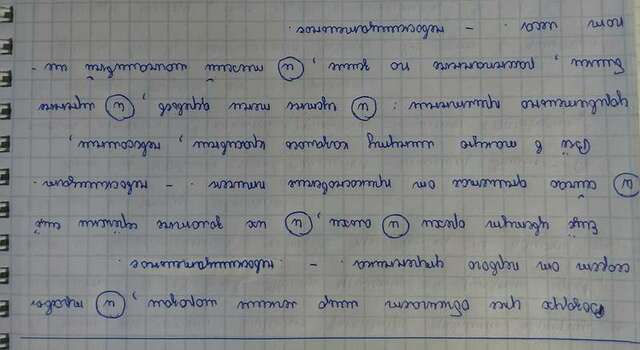 Воздух уже обжигает лицо легким морозом, и трава
седеет от первого утренника. - невосклицательное.
Ещё цветут орехи и ольхи, и их золотые серёжки ещё
и сейчас дымятся от прикосновения птичек. - невосклицат.
Всё в такую минуту казалось красивым, невесомым,
удивительно приятным: и густые тени деревьев, и лунные
блики, рассыпанные по земле, и тихий молчаливый ше-
пот леса. - невосклицательное.